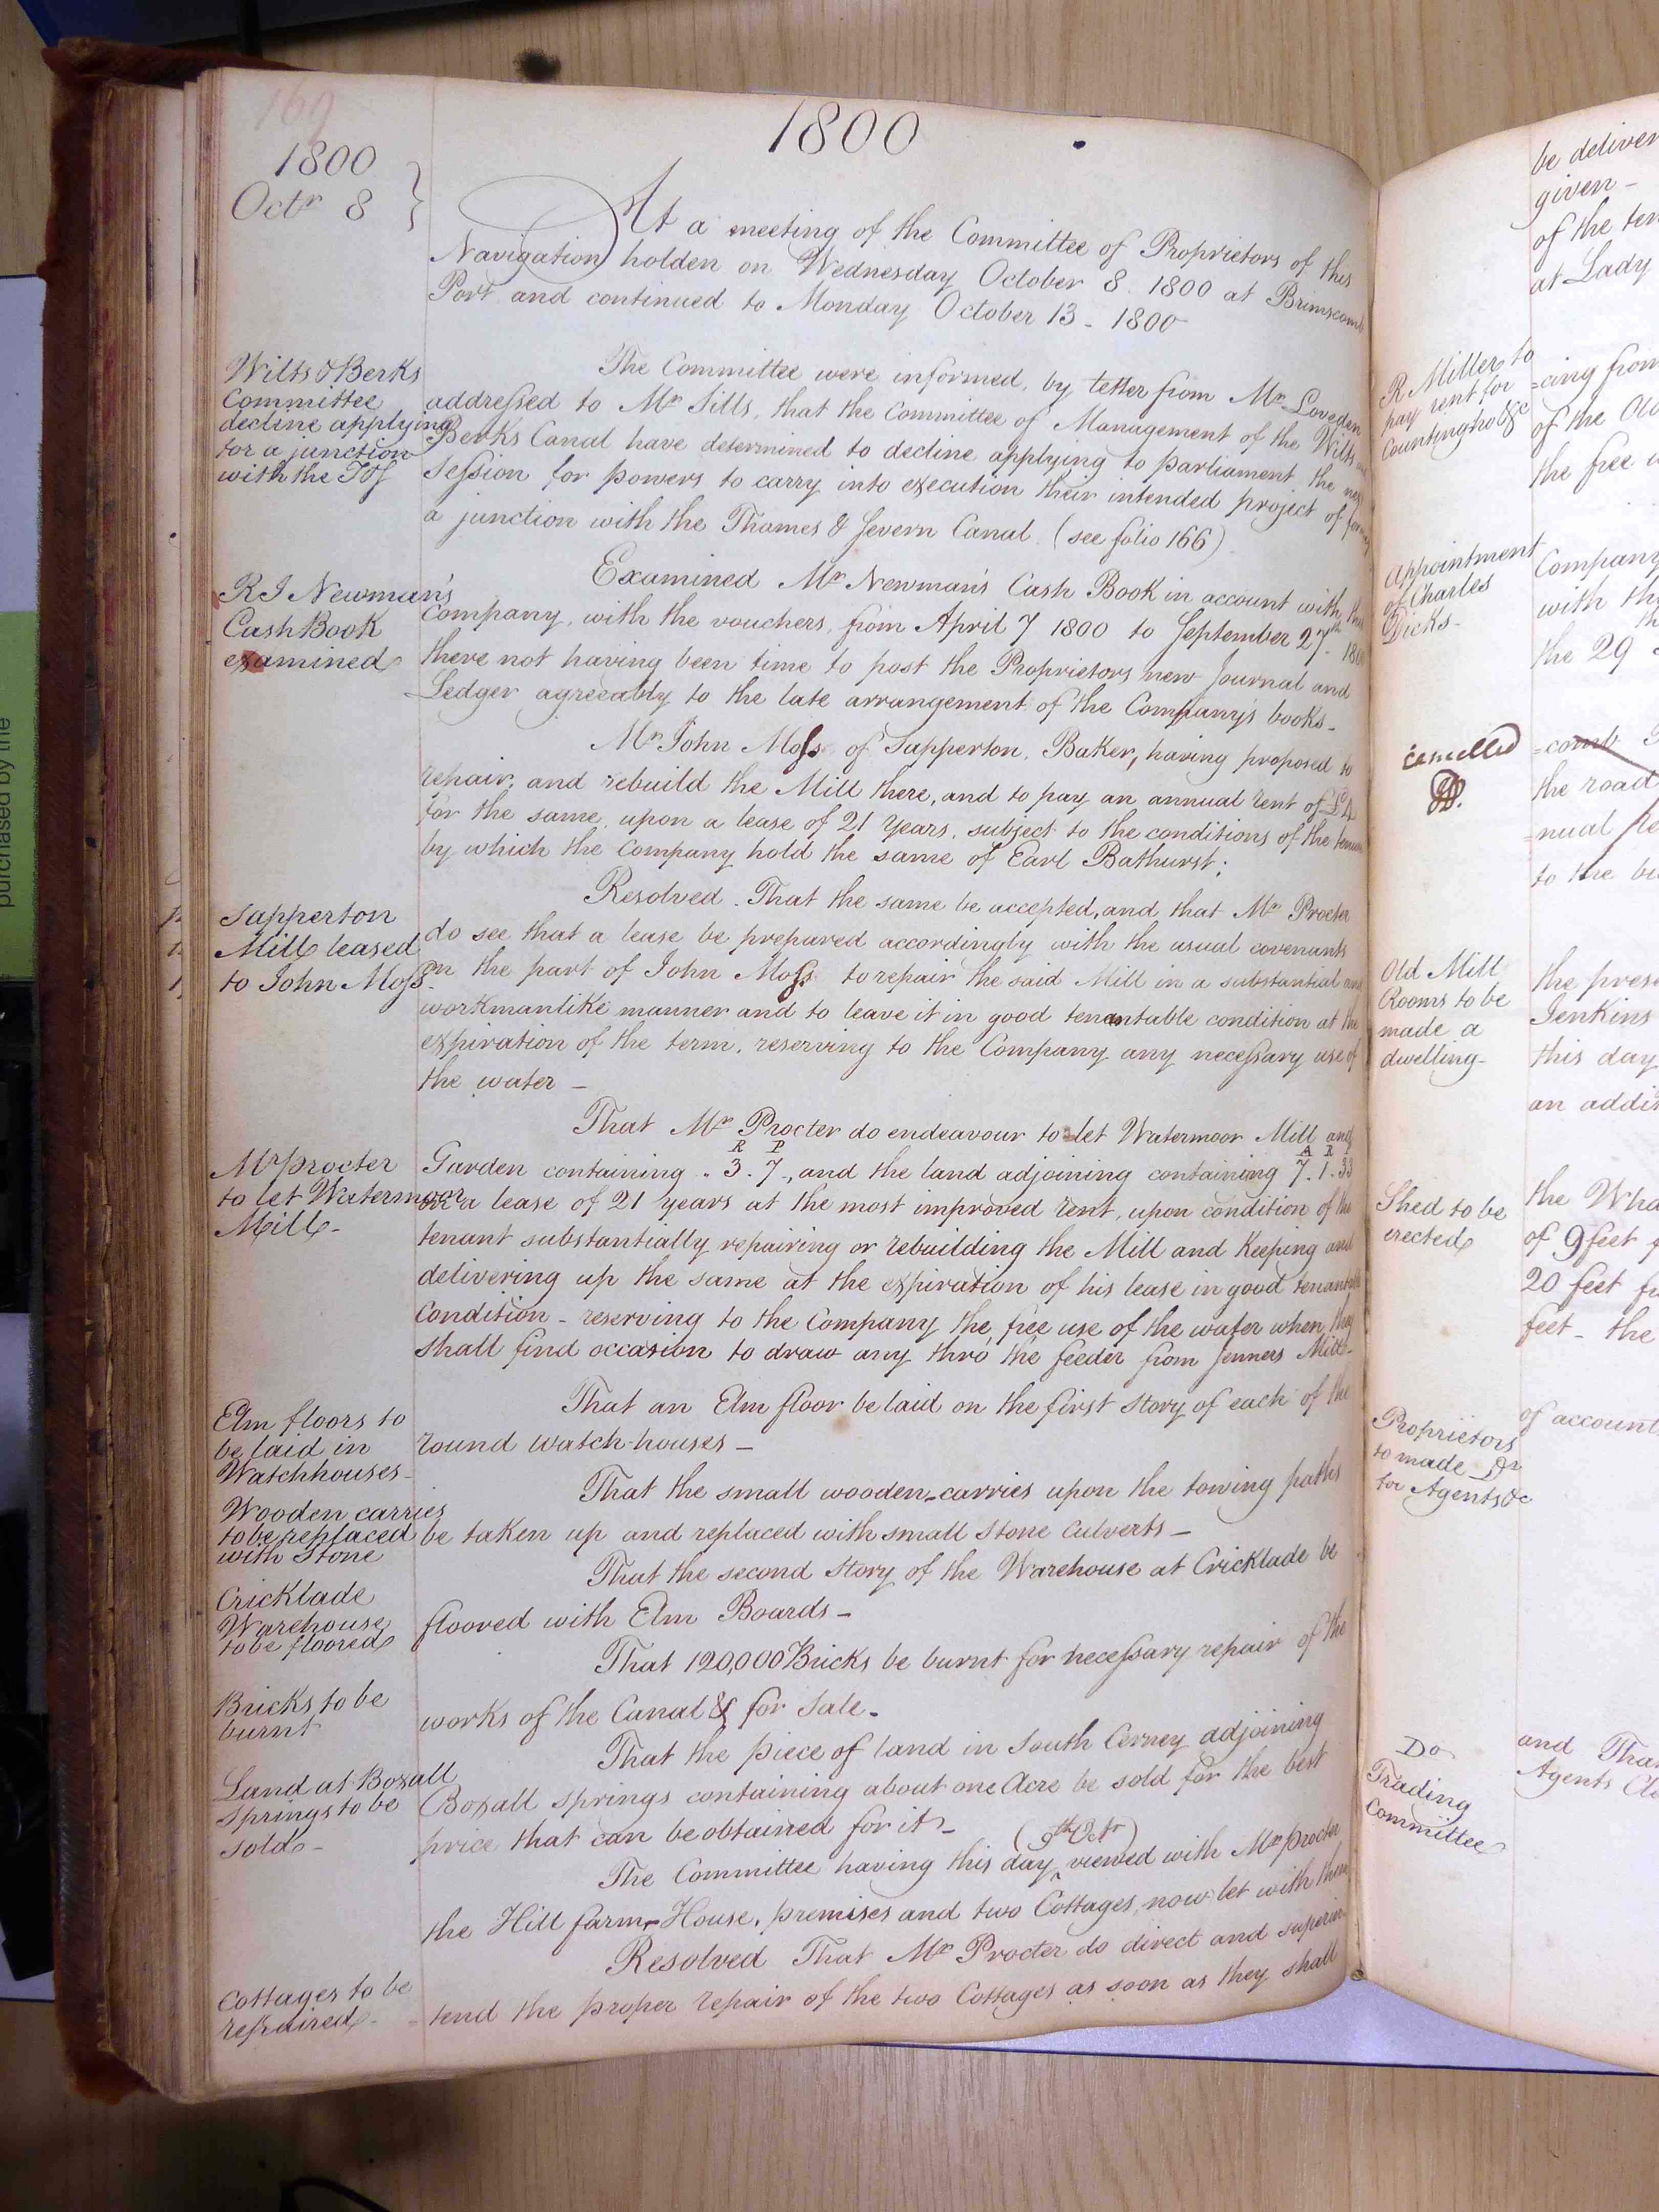 169
1800
1800
Octr 8
At a meeting of the Committee of Proprietors of this
Navigation holden on Wednesday October 8. 1800 at Brimscomb
Port and continued to Monday October 13 - 1800
Wilts & Berks
Committee
decline applying
for a junction
with the T&S
The Committee were informed, by letter from Mr Loveden
addressed to Mr Sills, that the Committee of Management of the Wilts and
Berks Canal have determined to decline applying to parliament the next
session for powers to carry into execution their intended project of forming
a junction with the Thames & Severn Canal. (see folio 166)
R J Newman's
Cash Book
examined
Examined Mr Newman's Cash Book in account with this
Company, with the vouchers, from April 7 1800 to September 27th 1800
there not having been time to post the Proprietors new Journal and
Ledger agreeably to the late arrangement of the Company's books -
Mr John Moss of Sapperton, Baker, having proposed to
repair, and rebuild the Mill there, and to pay an annual rent of £4
for the same, upon a lease of 21 Years, subject to the conditions of the tenure
by which the Company hold the same of Earl Bathurst;
Sapperton
Mill leased
to John Moss -
Resolved. That the same be accepted, and that Mr Procter
do see that a lease be prepared accordingly with the usual covenants
on the part of John Moss to repair the said Mill in a substantial and
workmanlike manner and to leave it in good tenantable condition at the
expiration of the term, reserving to the Company any necessary use of
the water -
Mr Procter
to let Watermoor
Mill -
That Mr Procter do endeavour to let Watermoor Mill and
R P A R P
Garden containing " 3. 7 -, and the land adjoining containing 7. 1. 33
on a lease of 21 years at the most improved rent, upon condition of the
tenant substantially repairing or rebuilding the Mill and keeping and
delivering up the same at the expiration of his lease in good tenantable
Condition - reserving to the Company the free use of the water when they
shall find occasion to draw any thro' the feeder from Jenners Mill -
Elm floors to
be laid in
Watchhouses -
That an Elm floor be laid on the first Story of each of the
round watch-houses -
Wooden carries
to be replaced
with Stone
That the small wooden-carries upon the towing paths
be taken up and replaced with small Stone Culverts -
Cricklade
Warehouse
to be floored
That the second Story of the Warehouse at Cricklade be
floored with Elm Boards -
Bricks to be
burnt
That 120,000 Bricks be burnt for necessary repair of the
works of the Canal & for Sale -
Land at Boxall
Springs to be
sold -
That the piece of land in South Cerney adjoining
Boxall springs containing about one Acre be sold for the best
price that can be obtained for it -
(9th Octr)
The Committee having this day viewed with Mr Procter
the Hill farm-House, premises and two Cottages, now let with them
Cottages to be
repaired -
Resolved That Mr Procter do direct and superin
=tend the proper repair of the two Cottages as soon as they shall
be deliver
given -
of the ten
at Lady
R Miller to
pay rent for
Countinghouse &c
=cing from
of the Old
the free
Appointment
of Charles
Dicks -
Company
with the
the 29
cancelled
=comb
the road
=nual
to the
Old Mill
Rooms to be
made a
dwelling -
the prese
Jenkins
this day
an addit
Shed to be
erected
the Wha
of 9 feet
20 feet
feet - the
Proprietors
to made Dr
for Agents &c
of account
Do
Trading
Committee
and That
Agents
purchased by the